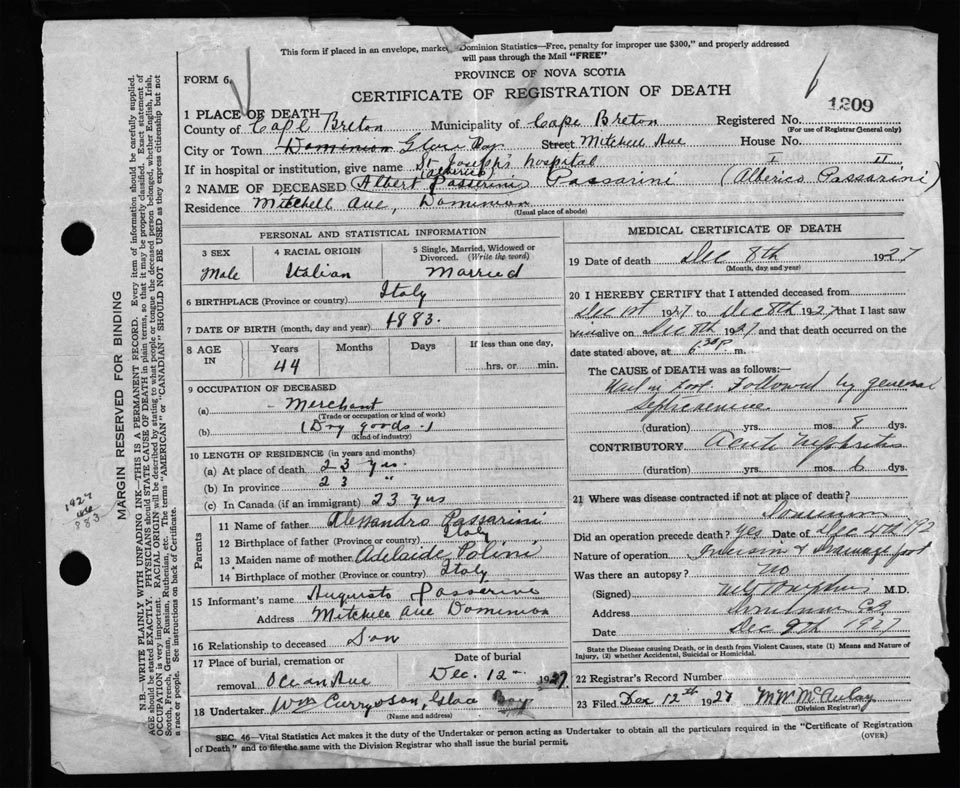 This form if placed in an envelope, marked "Dominion Statistics—Free, penalty for improper use $300," and properly addressed
will pass through the Mail "FREE"
FORM 6.
PROVINCE OF NOVA SCOTIA
CERTIFICATE OF REGISTRATION OF DEATH
1209
1 PLACE OF DEATH
County of Cape Breton Municipality of Cape Breton Registered No.
(For use of Registrar General only)
City or Town Dominion Glace Bay Street Mitchell Ave House No.
If in hospital or institution, give name St Joseph's hospital I II
(Alberico)
2 NAME OF DECEASED Albert Passerini Passarini (Alberico Passarini)
Residence Mitchell Ave, Dominion
(Usual place of abode)
PERSONAL AND STATISTICAL INFORMATION
3 SEX 4 RACIAL ORIGIN 5 Single, Married, Widowed or Divorced. (Write the word)
Male Italian Married
6 BIRTHPLACE (Province or country) Italy
7 DATE OF BIRTH (month, day and year) 1883.
8 AGE IN Years Months Days If less than one day,
44 hrs. or min.
9 OCCUPATION OF DECEASED
(a) Merchant
(Trade or occupation or kind of work)
(b) (Dry goods.)
(Kind of industry)
10 LENGTH OF RESIDENCE (in years and months)
(a) At place of death 23 yrs.
(b) In province 23 "
(c) In Canada (if an immigrant) 23 yrs
Parents
11 Name of father Alessandro Passarini
12 Birthplace of father (Province or country) Italy
13 Maiden name of mother Adelaide Polini
14 Birthplace of mother (Province or country) Italy
15 Informant's name Augusto Passerini
Address Mitchell Ave Dominion
16 Relationship to deceased Son
17 Place of burial, cremation or Date of burial
removal Ocean Ave Dec. 12 1927.
18 Undertaker Wm Curry & Son, Glace Bay
(Name and address)
MEDICAL CERTIFICATE OF DEATH
19 Date of death Dec 8th 1927
(Month, day and year)
20 I HEREBY CERTIFY that I attended deceased from
Dec 1st 1927 to Dec 8th 1927 that I last saw
him alive on Dec 8th 1927 and that death occurred on the
date stated above, at 6:30 P. m.
The CAUSE of DEATH was as follows:—
Nail in foot. Followed by general
Septicaemia
(duration) yrs. mos. 8 dys.
CONTRIBUTORY Acute Nephritis
(duration) yrs. mos. 6 dys.
21 Where was disease contracted if not at place of death?
Dominion
Did an operation precede death? Yes. Date of Dec 4th 192
Nature of operation Incision & drainage foot
Was there an autopsy? No
(Signed) M.D.
Address
Date Dec 9th 1927
State the Disease causing Death, or in death from Violent Causes, state (1) Means and Nature of
Injury, (2) whether Accidental, Suicidal or Homicidal.
22 Registrar's Record Number
23 Filed Dec 12th 1927 M W McAulay
(Division Registrar)
SEC. 46—Vital Statistics Act makes it the duty of the Undertaker or person acting as Undertaker to obtain all the particulars required in the "Certificate of Registration
of Death" and to file the same with the Division Registrar who shall issue the burial permit. (OVER)
MARGIN RESERVED FOR BINDING
N.B.—WRITE PLAINLY WITH UNFADING INK—THIS IS A PERMANENT RECORD. Every item of information should be carefully supplied.
AGE should be stated EXACTLY. PHYSICIANS should STATE CAUSE OF DEATH in plain terms, so that it may be properly classified. Exact statement of
OCCUPATION is very important. RACIAL ORIGIN will be described by stating to what people or tongue the deceased person belonged, whether English, Irish,
Scotch, French, German, Russian, Ruthenian, etc. The terms "AMERICAN" or "CANADIAN" SHOULD NOT BE USED as they express citizenship but not
a race or people. See instructions on back of Certificate.
1927
44
883